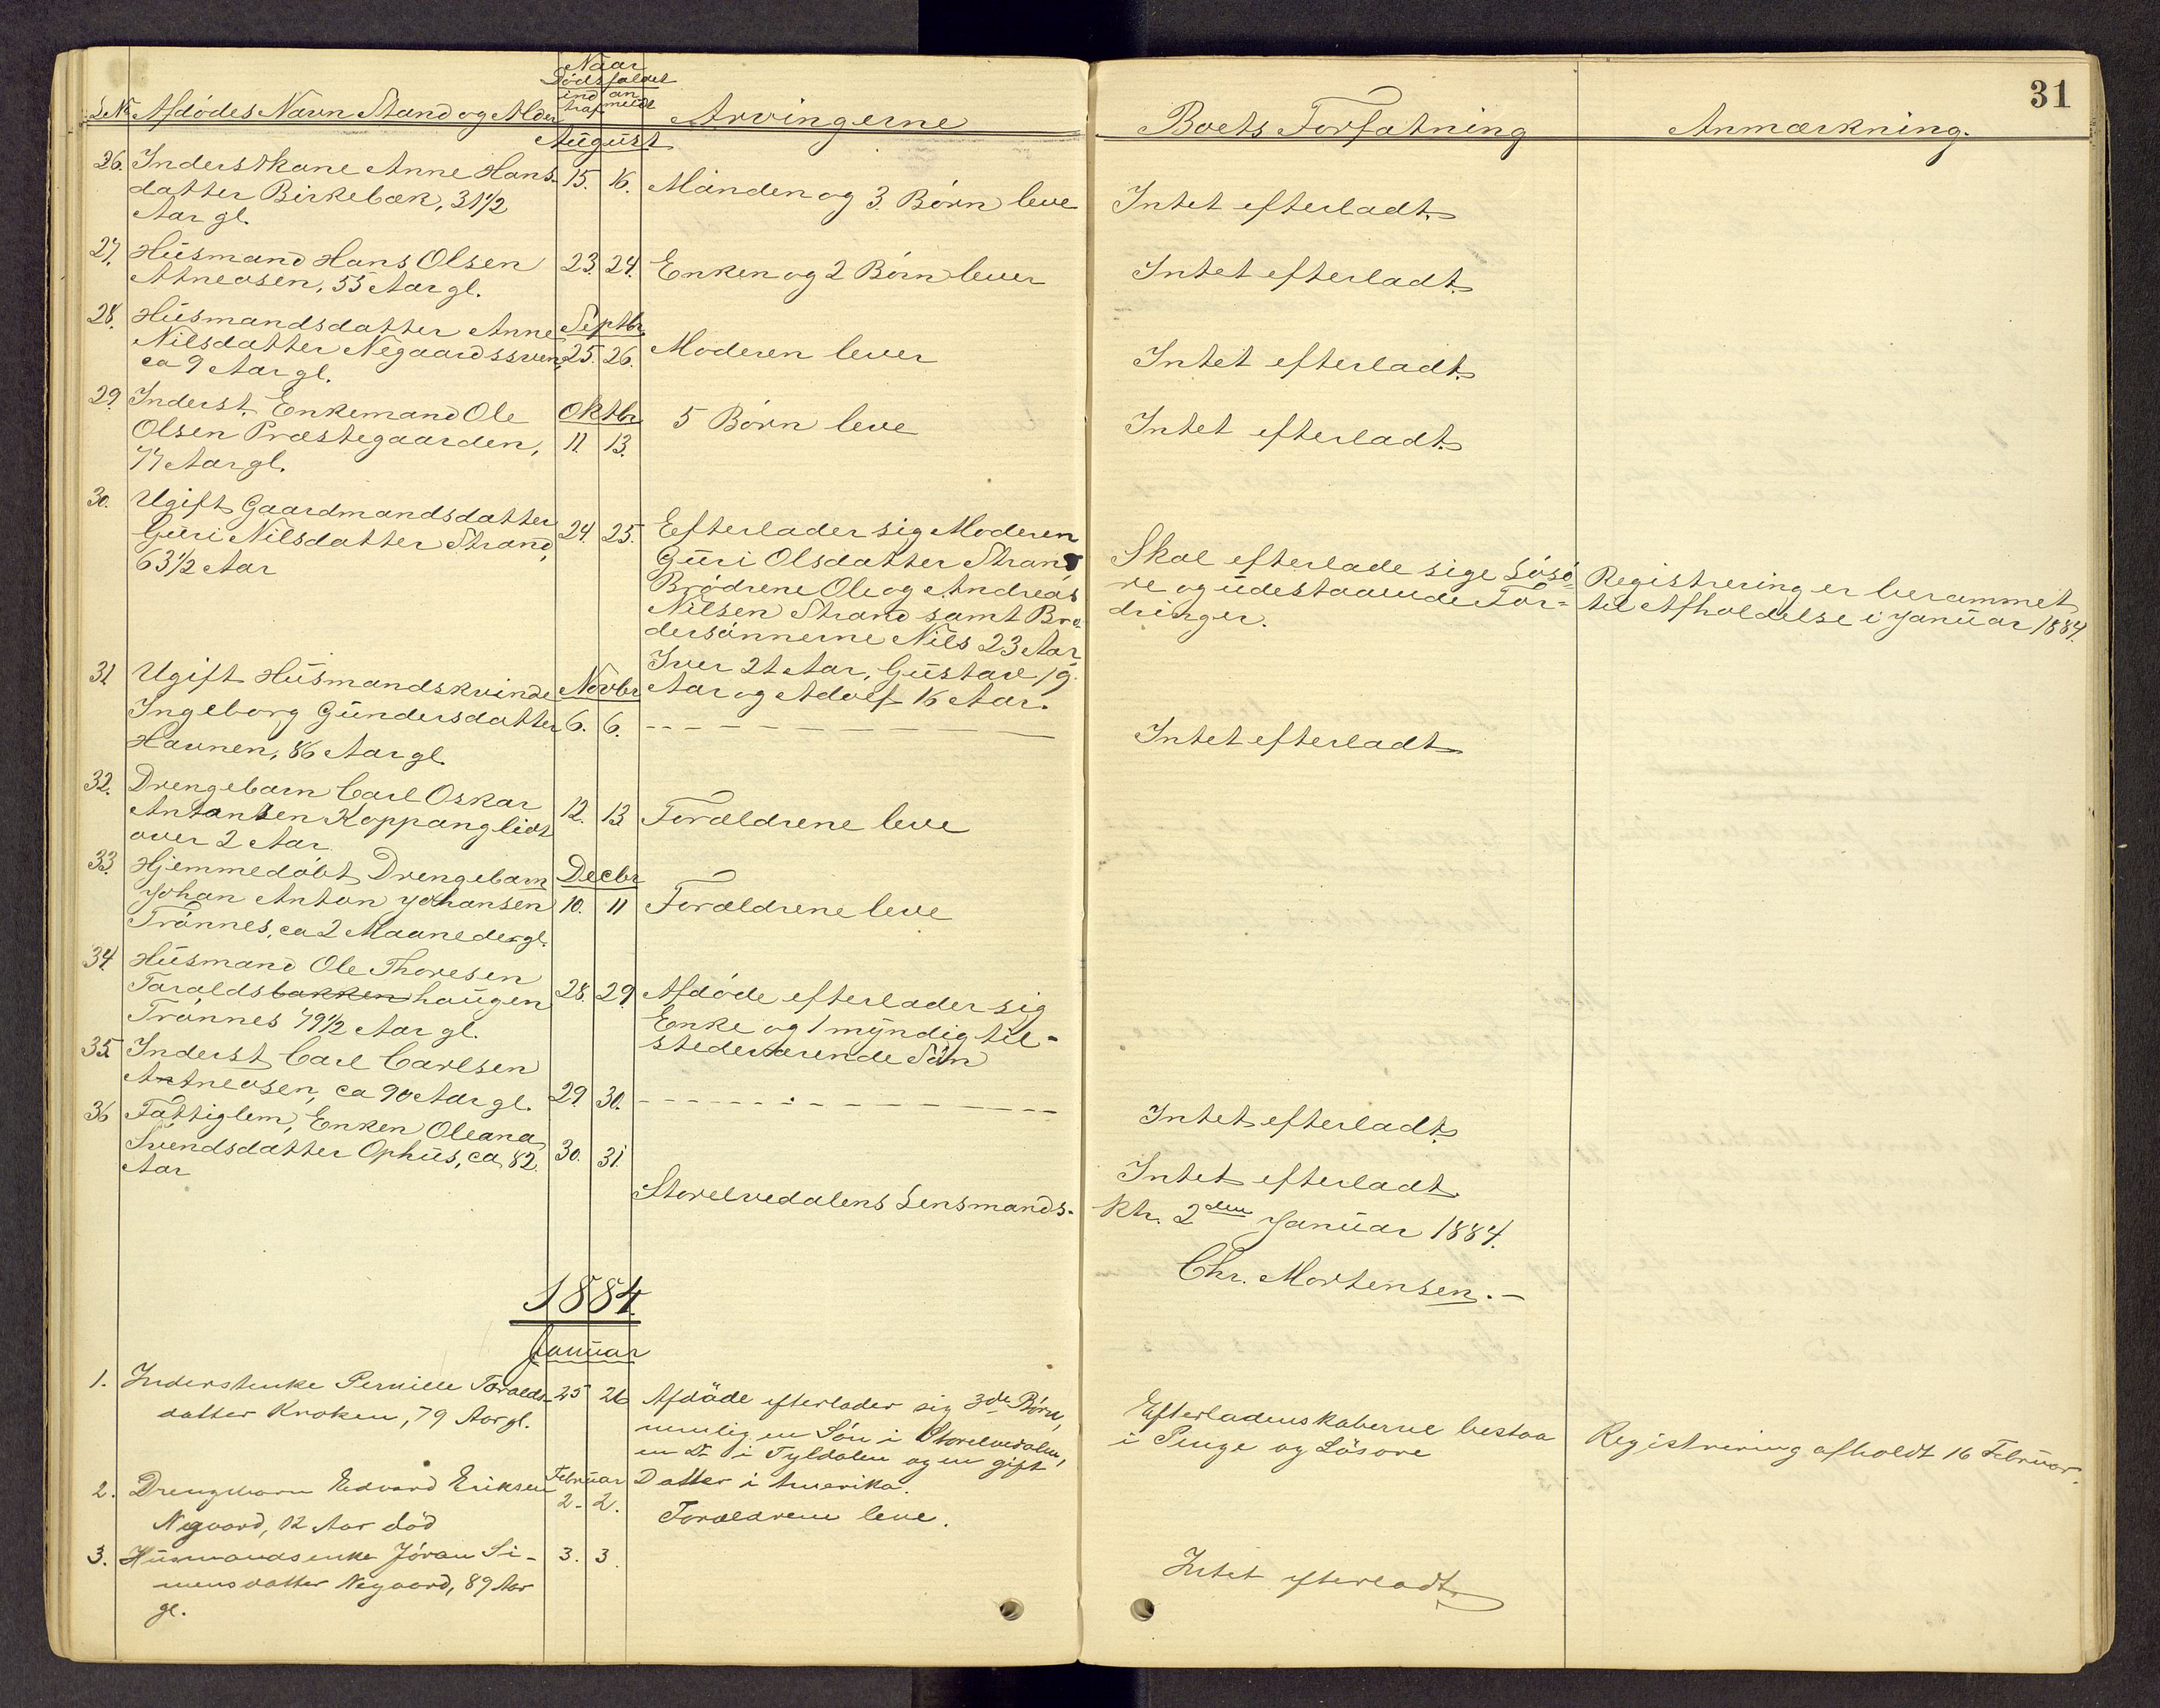 31
Naar
Dødsfaldet
ind an
traf meldt
L.No Afdødes Navn Stand og Alder Arvingerne Boets Forfatning Anmærkning.
August
26. Inderstkone Anne Hans- 15. 16. Manden og 3 Børn leve Intet efterladt.
datter Birkebæk, 31 1/2
Aar gl.
27. Husmand Hans Olsen 23. 24. Enken og 2 Børn lever Intet efterladt.
Atneosen, 55 Aar gl.
28. Husmandsdatter Anne Septbr.
Nilsdatter Negaardssveen, 25. 26. Moderen lever Intet efterladt.
ca 9 Aar gl.
29. Inderst Enkemand Ole Oktbr. 5 Børn leve Intet efterladt.
Olsen Præstegaarden, 11. 13.
77 Aar gl.
30. Ugift Gaardmandsdatter
Guri Nilsdatter Strand, 24. 25. Efterlader sig Moderen
63 1/2 Aar Guri Olsdatter Strand
Brødrene Ole og Andreas
Nilsen Strand samt Bro-
dersønnerne Nils 23 Aar
Iver 21 Aar, Gustav 19
Aar og Adolf 16 Aar.
Skal efterlade sige Løsø-
re og udestaaende For-
dringer.
Registrering er berammet
til Afholdelse i Januar 1884.
31 Ugift Husmandskvinde Novbr
Ingeborg Gundersdatter 6. 6. Intet efterladt
Havnen, 86 Aar gl.
32. Drengebarn Carl Oskar
Antonsen Koppang lidt 12. 13 Forældrene leve
over 2 Aar.
33. Hjemmedøbt Drengebarn Decbr
Johan Anton Johansen 10. 11 Forældrene leve
Trønnes, ca 2 Maaneder gl.
34. Husmand Ole Thoresen
Taraldsbakken haugen 28. 29 Afdøde efterlader sig
Trønnes 79 1/2 Aar gl. Enke og 1 myndig til-
stedeværende Søn
35. Inderst Carl Carlsen
Atneosen, ca 90 Aar gl. 29. 30. Intet efterladt.
36 Fattiglem, Enken Oleana
Svendsdatter Ophus, ca 82. 30. 31. Intet efterladt.
Aar
Storelvedalens Lensmands- Ktr. 2den Januar 1884.
Chr. Mortensen.-
1884
Januar
1. Inderstenke Pernille Taralds- 25 26 Afdøde efterlader sig 3de Børn,
datter Kroken, 79 Aar gl. nemlig en Søn i Storelvedalen,
en Dr i Tyldalen og en gift
Datter i Amerika.
Efterladenskaberne bestaa
i Penge og Løsøre
Registrering afholdt 16 Februar.
Februar
2. Drengebarn Edvard Eriksen 2. 2. Forældrene leve.
Negaard, 12 Aar død
3. Husmandsenke Jøran Si- 3. 3. Intet efterladt.
mensdatter Negaard, 89 Aar
gl.